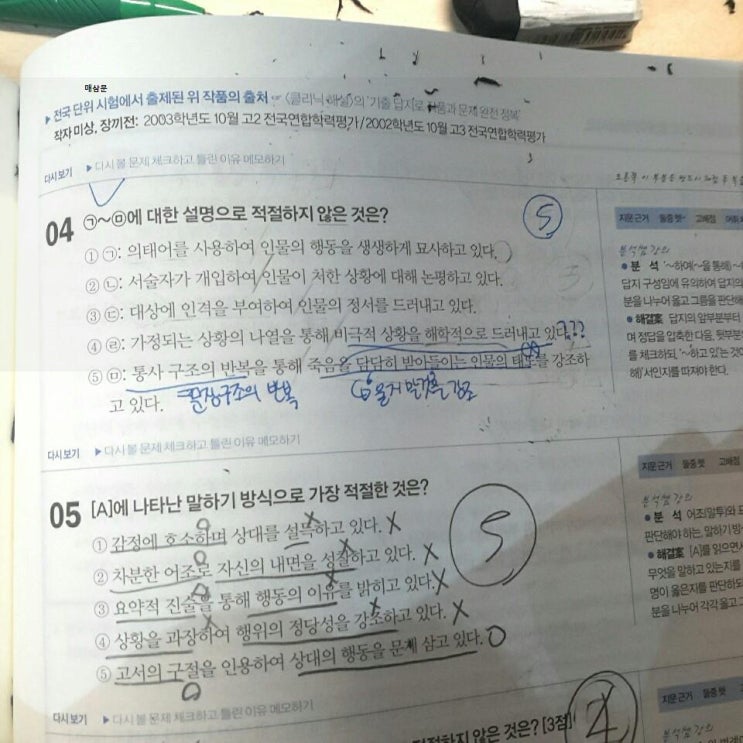 매삼문
▶ 전국 단위 시험에서 출제된 위 작품의 출처 ☞ 〈클리닉 해설〉의 '기출 답지로 작품과 문제 완전 정복'
작자 미상, 장끼전: 2003학년도 10월 고2 전국연합학력평가/2002학년도 10월 고3 전국연합학력평가
다시보기 ▶ 다시 볼 문제 체크하고 틀린 이유 메모하기
04 ㉠~㉤에 대한 설명으로 적절하지 않은 것은?
5
① ㉠: 의태어를 사용하여 인물의 행동을 생생하게 묘사하고 있다.
② ㉡: 서술자가 개입하여 인물이 처한 상황에 대해 논평하고 있다.
③ ㉢: 대상에 인격을 부여하여 인물의 정서를 드러내고 있다.
④ ㉣: 가정되는 상황의 나열을 통해 비극적 상황을 해학적으로 드러내고 있다. ???
⑤ ㉤: 통사 구조의 반복을 통해 죽음을 담담히 받아들이는 인물의 태도를 강조하
고 있다. =문장구조의 반복
다시보기 ▶ 다시 볼 문제 체크하고 틀린 이유 메모하기
05 [A]에 나타난 말하기 방식으로 가장 적절한 것은?
5
① 감정에 호소하며 상대를 설득하고 있다. X
② 차분한 어조로 자신의 내면을 성찰하고 있다. X
③ 요약적 진술을 통해 행동의 이유를 밝히고 있다. X
④ 상황을 과장하여 행위의 정당성을 강조하고 있다. X
⑤ 고서의 구절을 인용하여 상대의 행동을 문제 삼고 있다. O
다시보기 ▶ 다시 볼 문제 체크하고 틀린 이유 메모하기
적절하지 않은 것은? [3점]
지문 근거 둘중 헷 고배점
분석쌤 강의
● 분 석 '~하여(~을 통해) ~
답지 구성임에 유의하여 답지의
분을 나누어 옳고 그름을 판단해
● 해결案 답지의 앞부분부터
며 정답을 압축한 다음, 뒷부분
를 체크하되, '~하고 있'는 것
해' 서인지를 따져야 한다.
지문 근거 둘중 헷 고배점
분석쌤 강의
● 분 석 어조(말투)와
판단해야 하는, 말하기 방
● 해결案 [A]를 읽으면서
무엇을 말하고 있는지를
명이 옳은지를 판단하되
분을 나누어 각각 옳고 그
지문 근거 둘중 헷
분석쌤 강의